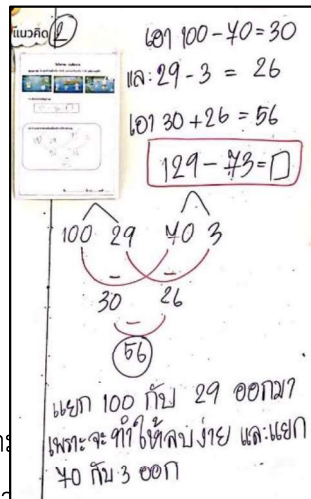 แนวคิด 2
เอา 100-70=30
และ 29-3 = 26
เอา 30+26 = 56
129-73=□
100 29 70 3
- -
30 26
-
56
แยก 100 กับ 29 ออกมา
เพราะจะทำให้ลบง่าย และแยก
70 กับ 3 ออก